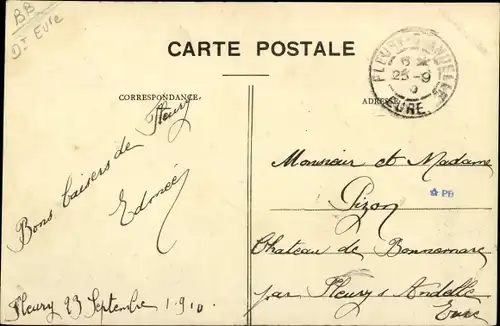 BB
Dt Eure
CARTE POSTALE
CORRESPONDANCE
ADRESSE
FLEURY-S-ANDELLE
25-9
EURE
Bons baisers de Fleury
Edmée
Fleury 23 Septembre 1910
Monsieur et Madame
Pizon
* PB
Chateau de Bonnemare
par Fleury s Andelle
Eure